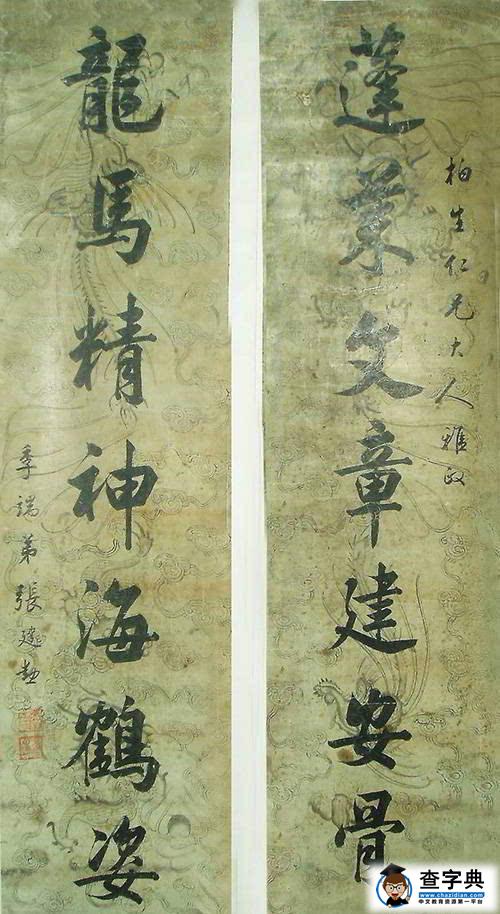 柏生仁兄大人雅政
蓬萊文章建安骨
龍馬精神海鶴姿
季端弟張建勳
查字典
www.chazidian.com
中文教育资源第一平台